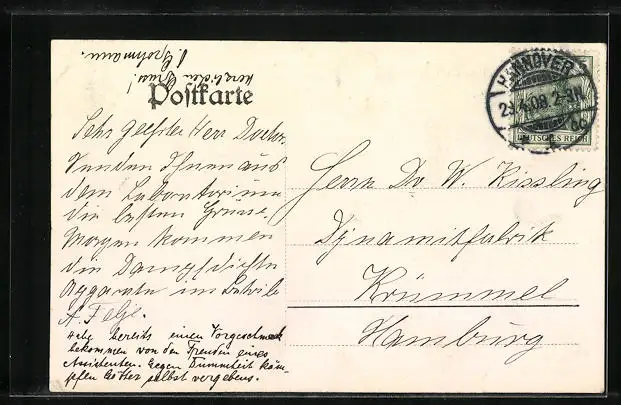 herzlichen Gruss!
J. Grohmann.
Postkarte
HANNOVER
2-3N
DEUTSCHES REICH
Sehr geehrter Herr Doctor.
Senden Ihnen aus
dem Laboratorium
die besten Grüsse.
Morgen kommen
die Dampfdichte
Apparate in Betrieb
Habe bereits einen Vorgeschmack
bekommen von den Freuden eines
Assistenten. Gegen Dummheit käm-
pfen Götter selbst vergebens.
Herrn Dr W. Kissling
Dynamitfabrik
Krümmel
Hamburg